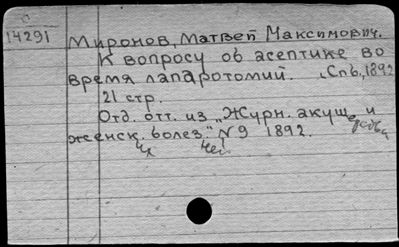 14291
Миронов, Матвей Максимович.
К вопросу об асептике во
время лапаротомий. Спб, 1892
21 стр.
Отд. отт. из „Журн. акуще и
женск. болез." N9 1892.